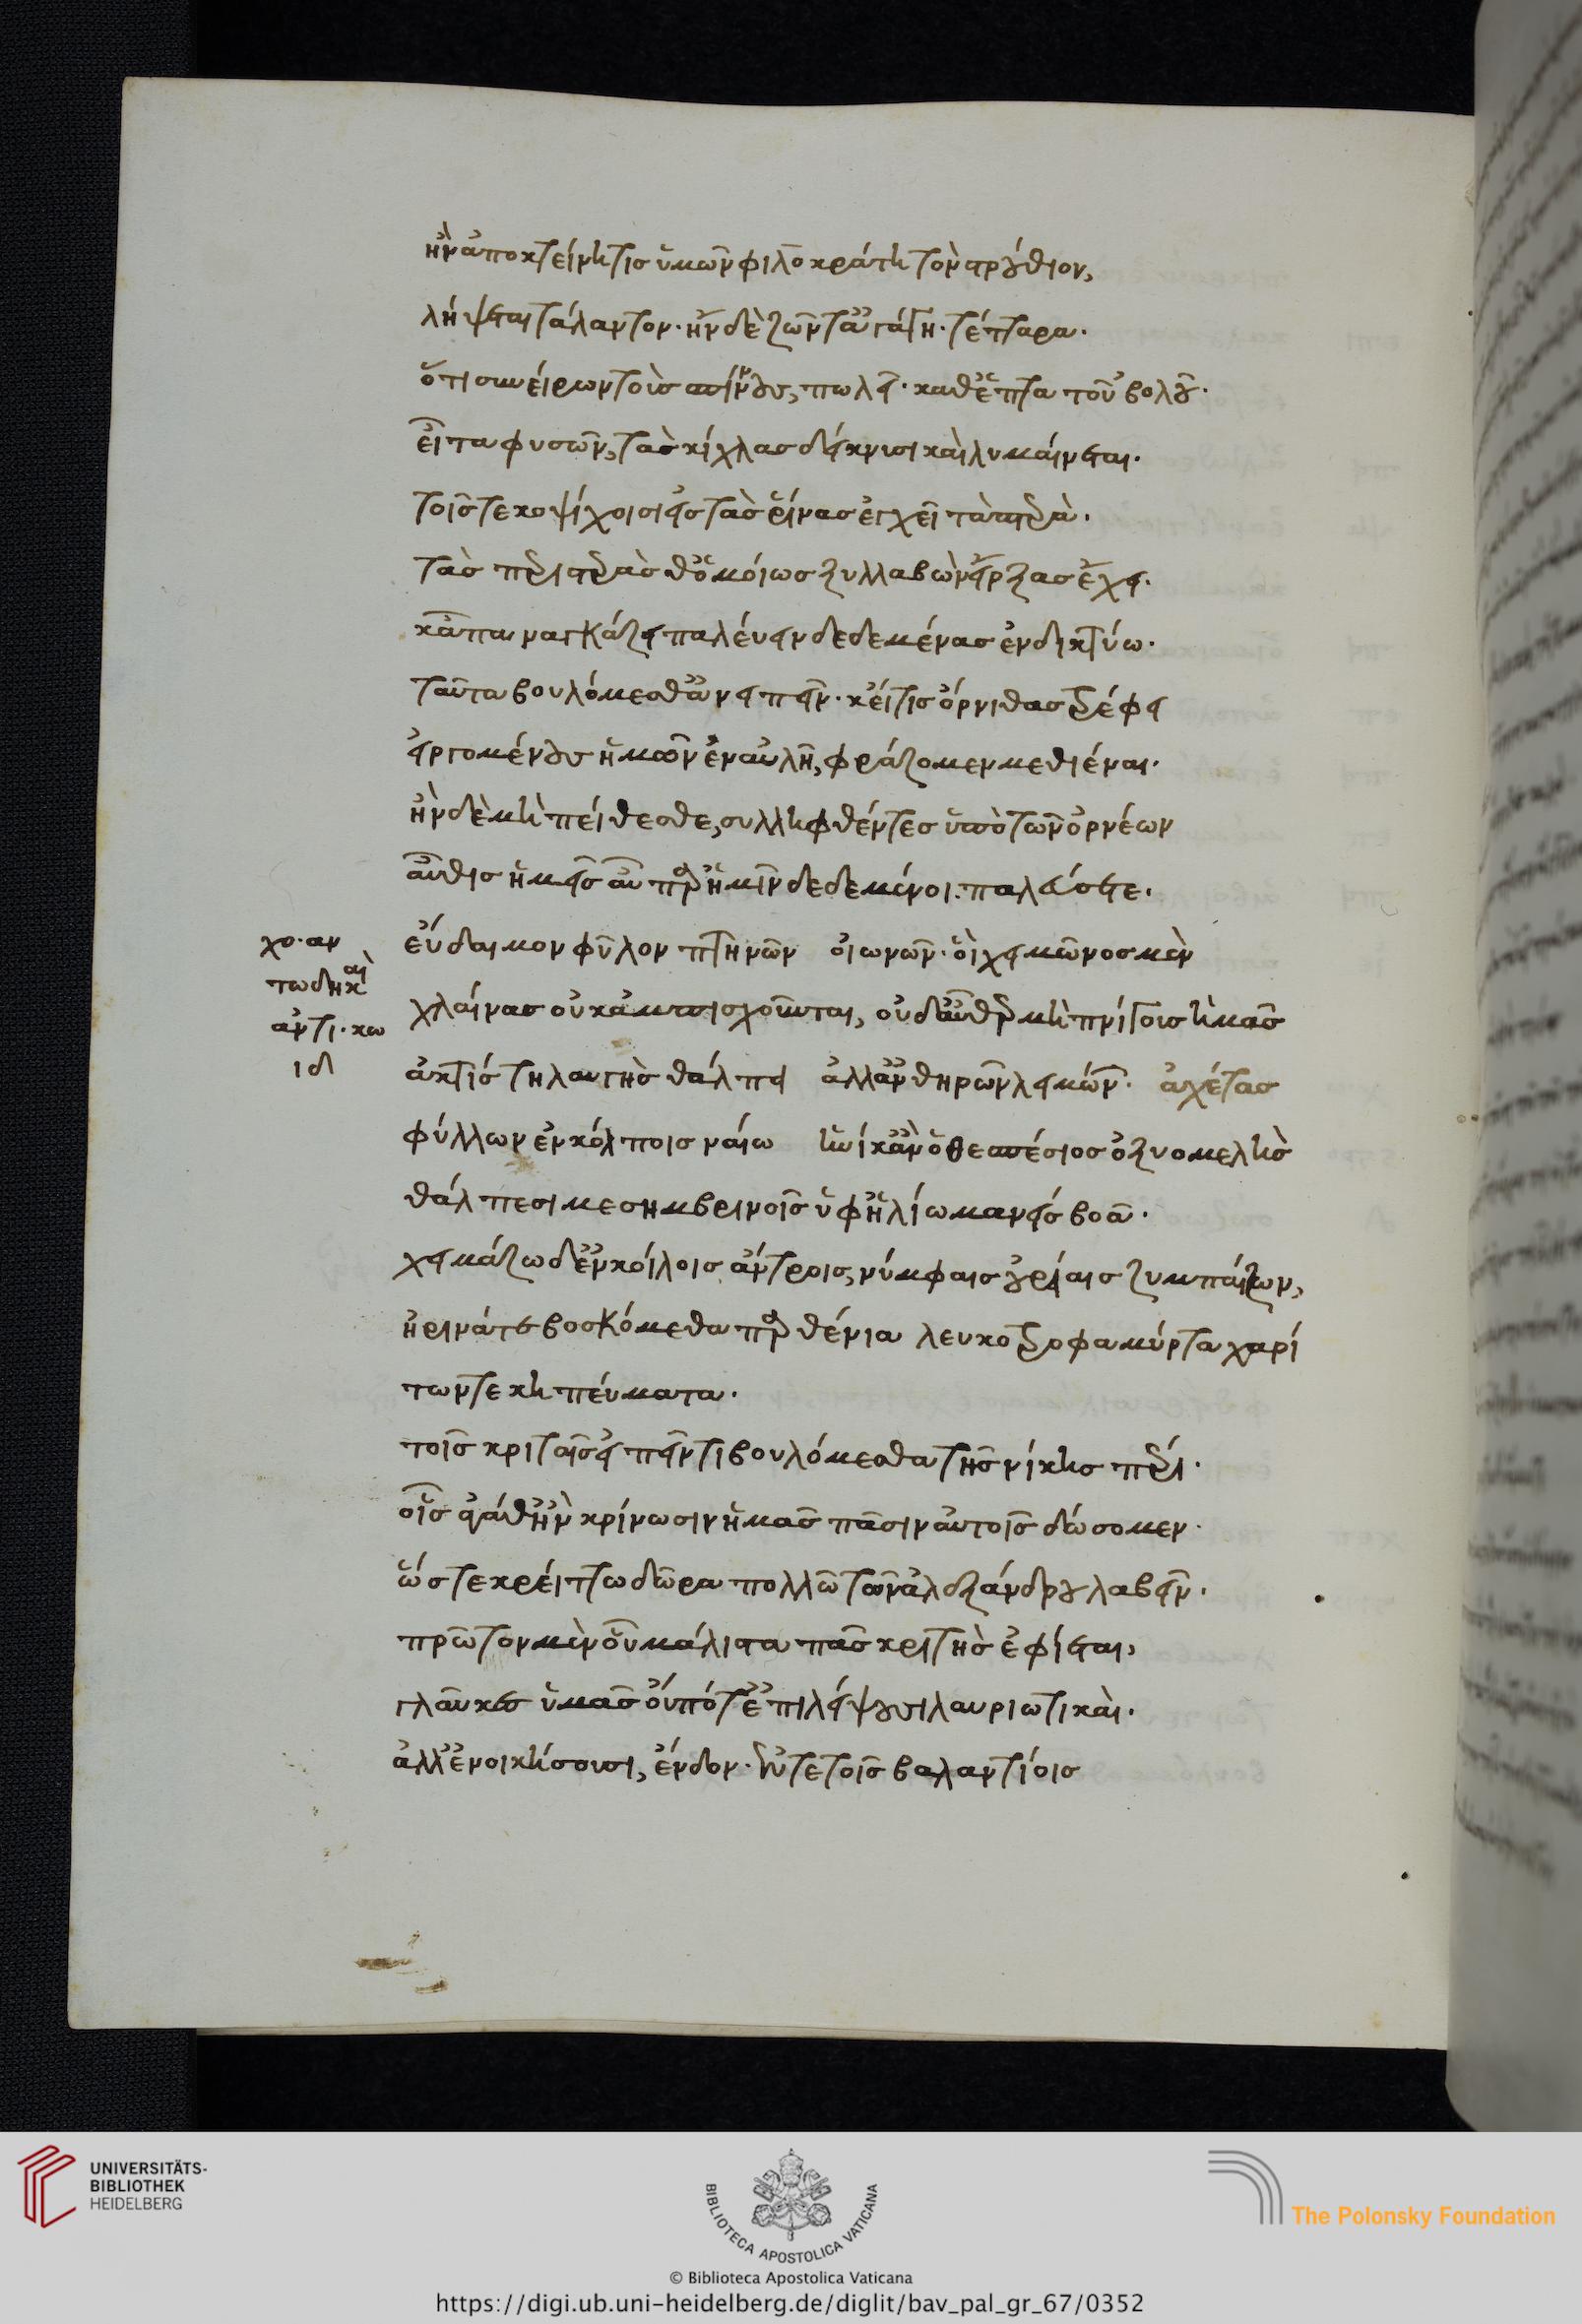 ἢν ἀποκτείνη τις ὑμῶν φιλοκράτη τὸν στρούθιον,
λήψεται τάλαντον· ἢν δὲ ζῶντ' ἀγάγη· τέτταρα·
ὅτι συνείρων τοὺς σπίνους, πωλεῖ· καθ' ἑπτὰ τοὐβολοῦ·
εἶτα φυσῶν, τὰς κίχλας δείκνυσι καὶ λυμαίνεται·
τοῖς τε κοψίχοισι εἰς τὰς ῥίνας ἐγχεῖ τὰ πτερὰ·
τὰς περιστερὰς θ' ὁμοίως ξυλλαβὼν εἵρξας ἔχει·
κἀπαναγκάζει παλεύειν δεδεμένας ἐν δικτύω·
ταῦτα βουλόμεσθ' ἀνειπεῖν· κεἴ τις ὄρνιθας τρέφει
εἰργομένους ὑμῶν ἐν αὐλῆ, φράζομεν μεθιέναι·
ἢν δὲ μὴ πείθεσθε, συλληφθέντες ὑπὸ τῶν ὀρνέων
αὖθις ὑμεῖς αὖ παρ' ἡμῖν δεδεμένοι παλεύσετε·
χο· αν εὔδαιμον φῦλον πτηνῶν οἰωνῶν· οἳ χειμῶνος μὲν
τωδὴ καὶ
χλαίνας οὐκ ἀμπισχοῦνται, οὐδ' αὖ θερμὴ πνίγους ἡμᾶς
ἀντι· κω
ιδ ἀκτὶς τηλαυγὴς θάλπει ἀλλ' ἀνθηρῶν λειμών· ἀχέτας
φύλλων ἐν κόλποις ναίω ἡνίκ' ἂν ὁ θεσπέσιος ὀξυομελὴς
θάλπεσι μεσημβρινοῖς ὑφ' ἡλίω μανεὶς βοᾶ·
χειμάζω δ' ἐν κοίλοις ἄντροις, νύμφαις οὐρείαις ξυμπαίζων,
ἠρινά τε βοσκόμεθα παρθένια λευκότροφα μύρτα χαρί
των τε κηπεύματα·
τοῖς κριταῖς εἰπεῖν τι βουλόμεσθα τῆς νίκης πέρι·
οἷς ἀγάθ' ἢν κρίνωσιν ἡμᾶς πᾶσιν αὐτοῖς δώσομεν·
ὥστε κρείττω δῶρα πολλῶ τῶν ἀλεξάνδρου λαβεῖν·
πρῶτον μὲν οὖν μάλιστα πᾶς κριτὴς ἐφίεται,
γλαῦκες ὑμᾶς οὔποτ' ἐπιλείψουσι λαυριωτικαὶ·
ἀλλ' ἐνοικήσουσι, ἔνδον· ἔν τε τοῖς βαλαντίοις
UNIVERSITÄTS-
BIBLIOTHEK
HEIDELBERG
BIBLIOTECA APOSTOLICA VATICANA
The Polonsky Foundation
© Biblioteca Apostolica Vaticana
https://digi.ub.uni-heidelberg.de/diglit/bav_pal_gr_67/0352